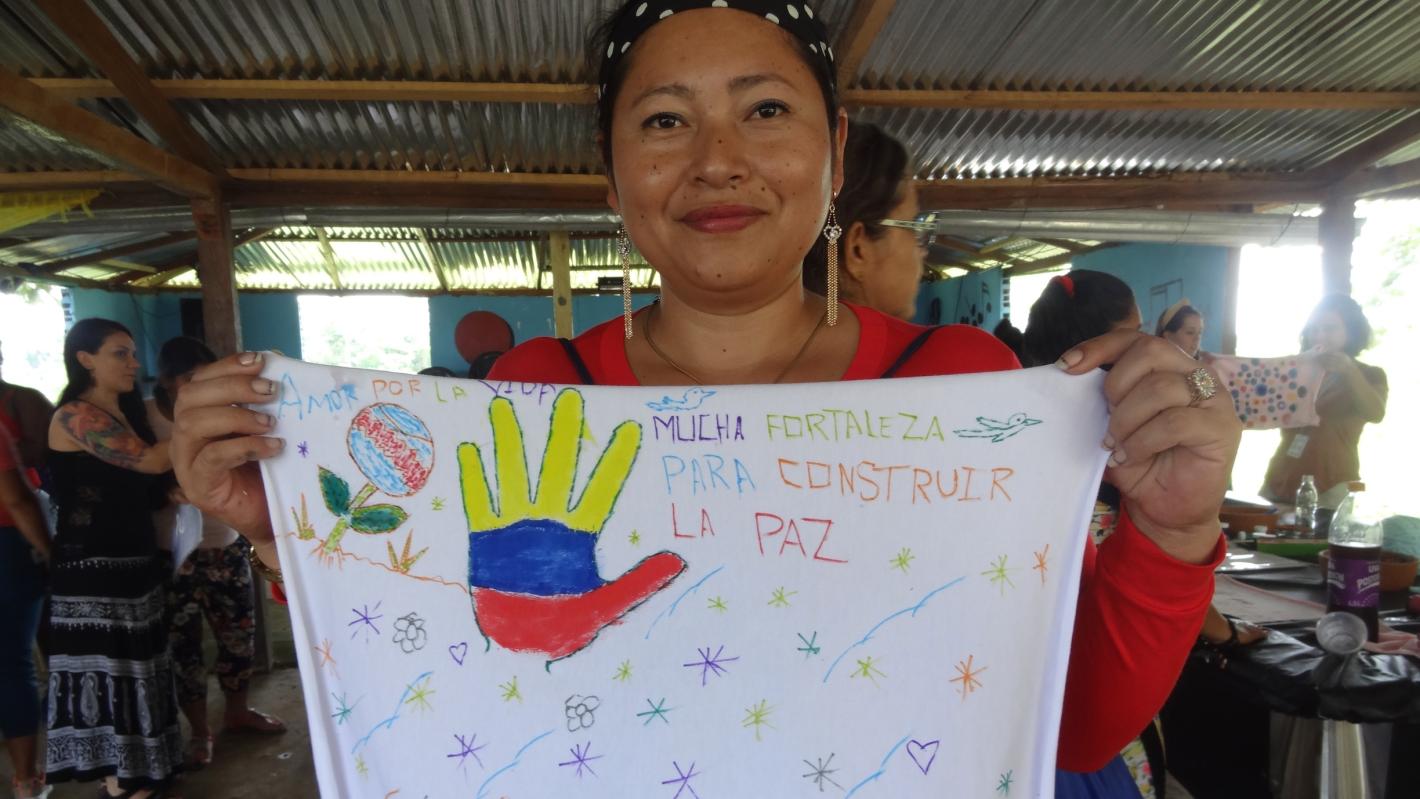 AMOR POR LA VIDA
MUCHA FORTALEZA
PARA CONSTRUIR
LA PAZ